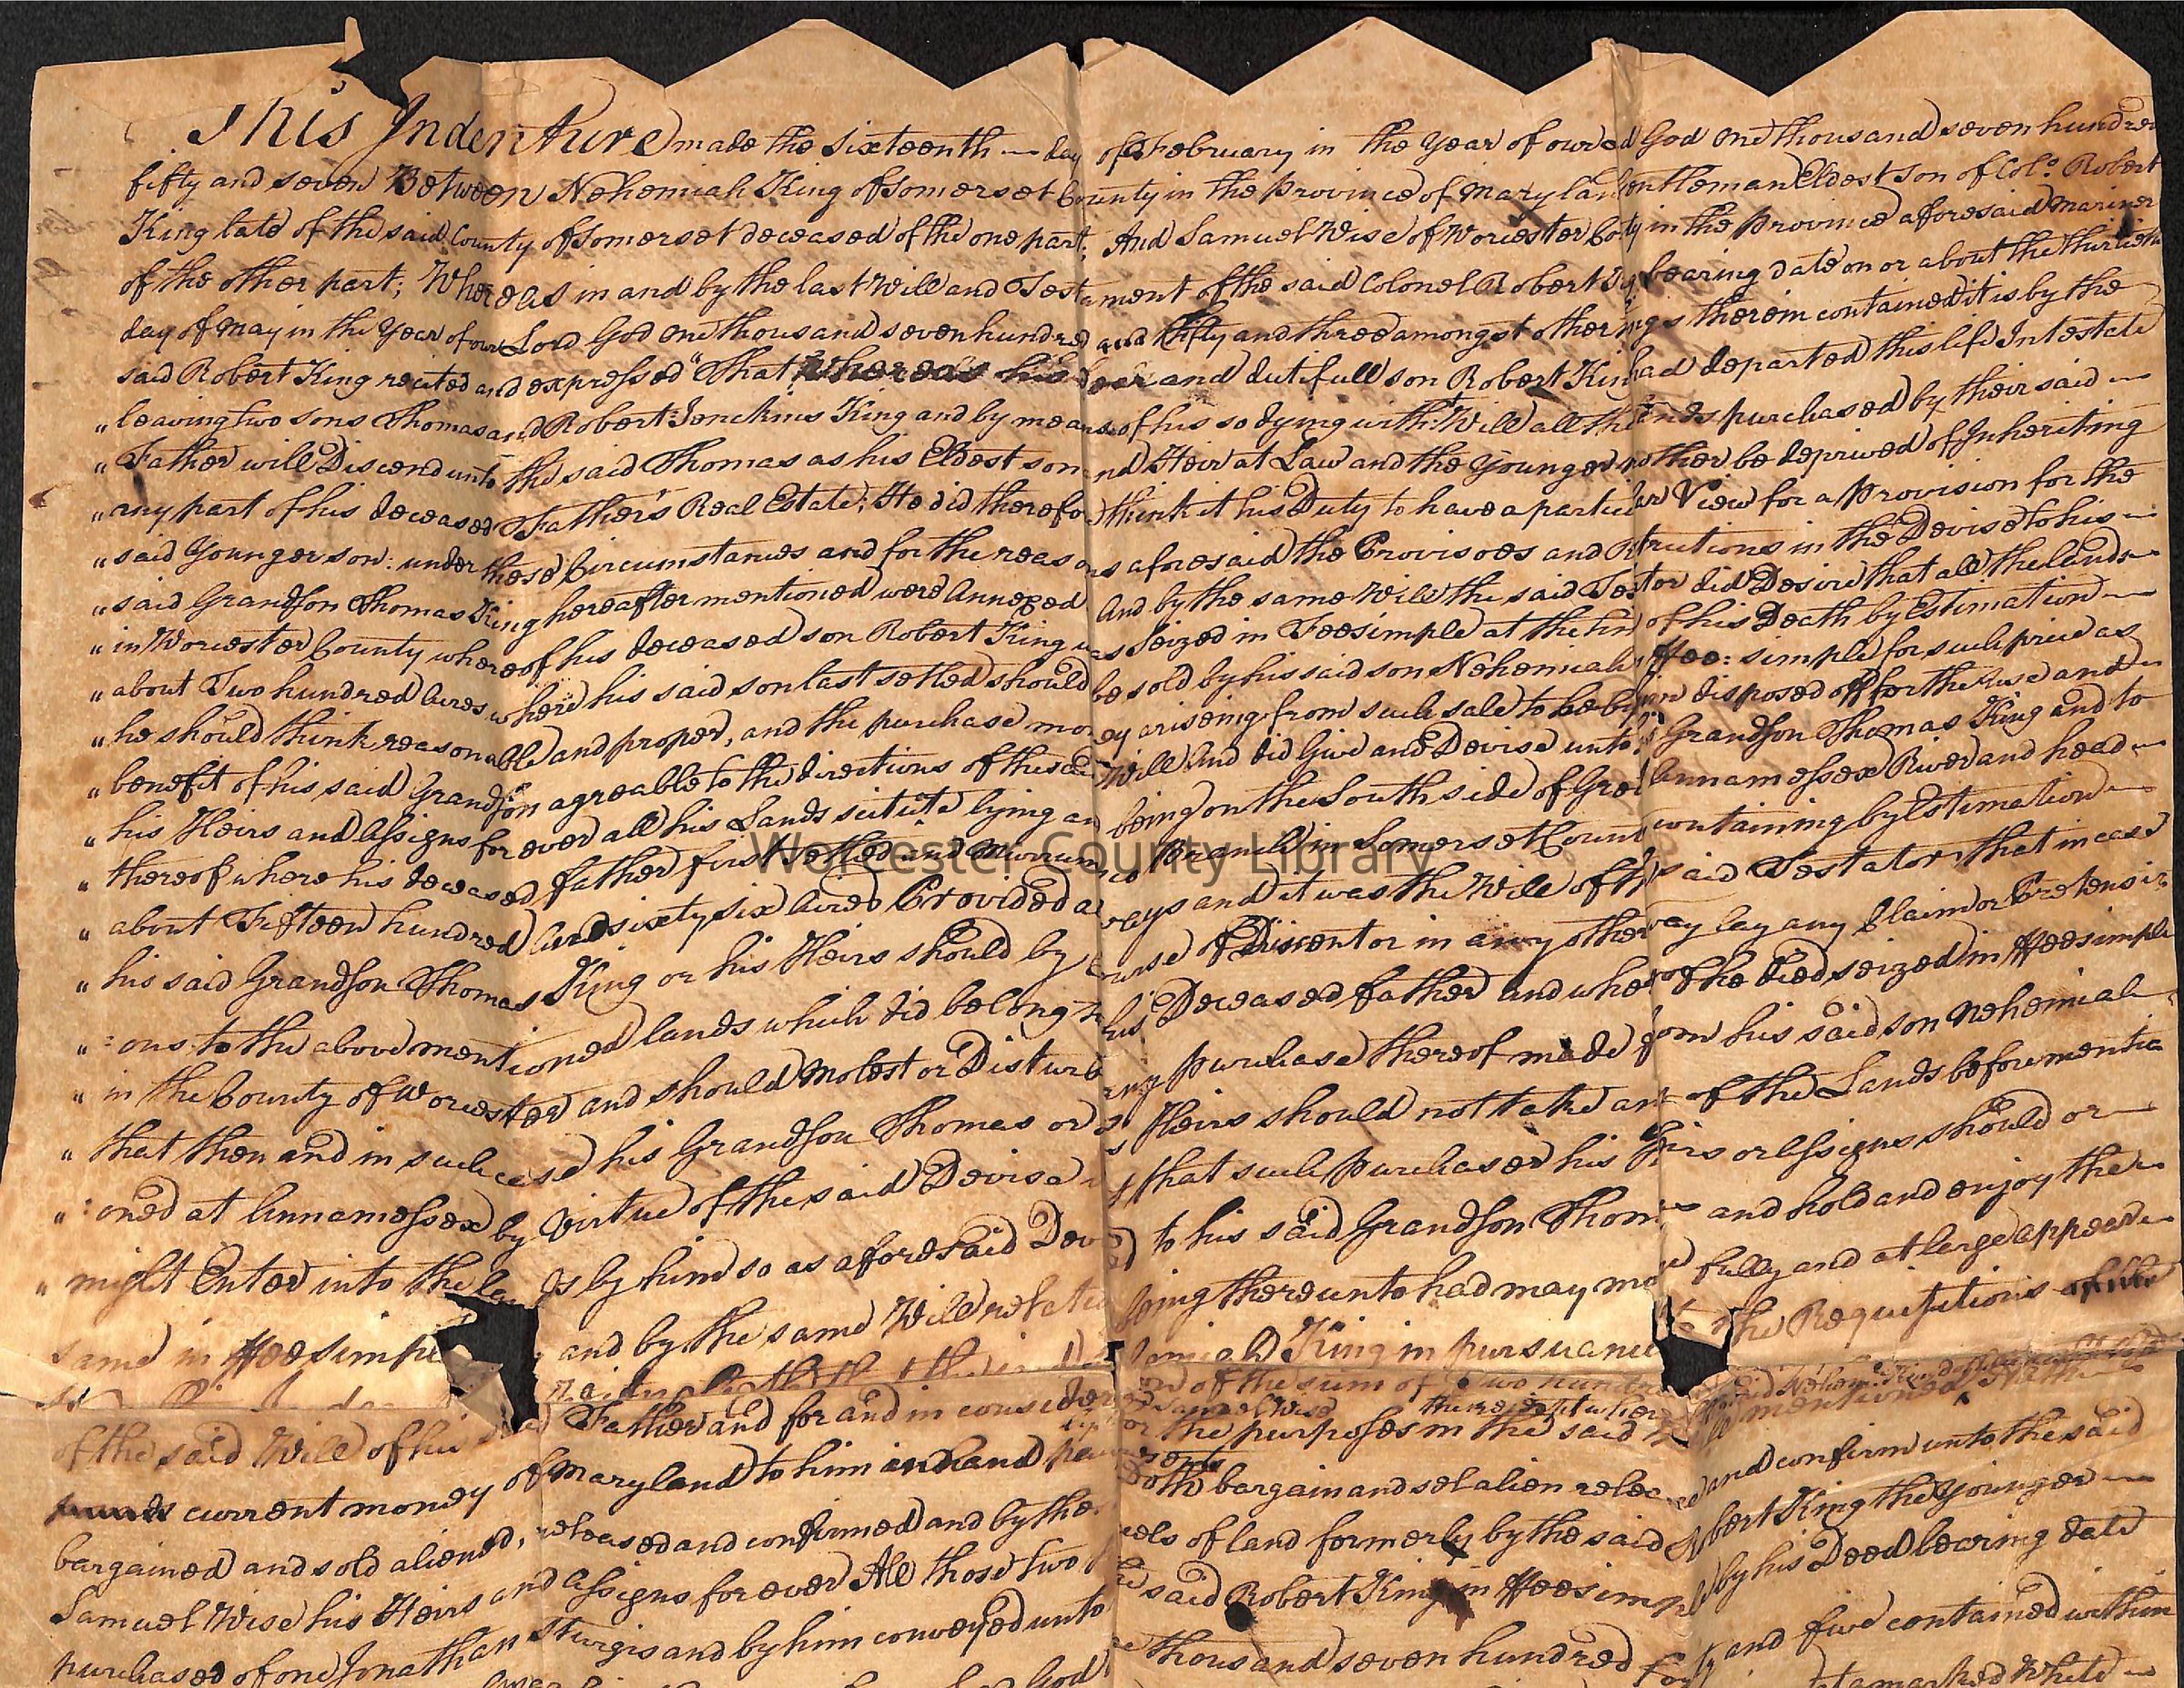 This Indenture made the Sixteenth day of February in the Year of our God One thousand seven hundred
fifty and seven Between Nehemiah King of Somerset County in the Province of Maryland Gentleman Eldest son of Colo. Robert
King late of the said County of Somerset deceased of the one part; And Samuel Wise of Worcester in the Province aforesaid Mariner
of the other part; Whereas in and by the last Will and Testament of the said Colonel Robert bearing date on or about the thirtieth
day of May in the Year of our Lord God One thousand seven hundred and fifty and three amongst other therein contained it is by the
said Robert King recited and expressed "That Whereas his dear and dutifull son Robert King had departed this life Intestate
" leaving two sons Thomas and Robert Jenckins King and by means of his so dying witht. Will all the Lands purchased by their said
" Father will Discend unto the said Thomas as his Eldest son and Heir at Law and the Younger be deprived of Inheriting
" any part of his deceased Father's Real Estate; He did therefore think it his Duty to have a particular View for a Provision for the
" said Younger son: under these Circumstances and for the reasons aforesaid the Provisoes and in the Devise to his
" said Grandson Thomas King hereafter mentioned were Annexed And by the same Will the said Testator did Desire that all the lands
" in Worcester County whereof his deceased son Robert King was Seized in Feesimple at the time of his Death by Estimation
" about Two hundred Acres where his said son last setled should be sold by his said son Nehemiah Ffee: simple for such price as
" he should think reasonable and proper, and the purchase money ariseing from such sale to be by disposed off for the Use and
" benefit of his said Grandson agreable to the directions of the said Will And did Give and Devise unto his Grandson Thomas King and to
" his Heirs and Assigns for ever all his Lands scituate lying and being on the South side of Great Annamessex River and head
" thereof where his deceased father first setled and Branch in Somerset County containing by Estimation
" about Fifteen hundred and sixty six Acres Provided always and it was the Will of the said Testator that in case
" his said Grandson Thomas King or his Heirs should by Course of Discent or in any other way lay any Claim or Pretensi
" : ons to the above mentioned lands which did belong to his Deceased father and whereof he died seized in Ffeesimple
" in the County of Worcester and should Molest or Disturb any Purchase thereof made from his said son Nehemiah
" that then and in such case his Grandson Thomas or his Heirs should not take any of the Lands before mentio
" : oned at Annamessex by Virtue of the said Devise but that such Purchaser his Heirs or Assigns should or
" might Enter into the by him so as aforesaid Devised to his said Grandson Thomas and hold and enjoy the
same in Ffeesimple and by the same Will relation being thereunto had may more fully and at large appear
King in pursuance the Requisitions
of the said Will of his said Father and for and in consideration of the sum of Two hundred
Samuel Wise the receipt where
current money of Maryland to him in hand for the purposes in the said mentioned
bargained and sold aliened, released and confirmed and by these doth bargain and sel alien release and confirm unto the said
Samuel Wise his Heirs and Assigns for ever All those two of land formerly by the said Robert King the Younger
purchased of one Jonathan Sturgis and by him conveyed unto the said Robert King in Ffeesimple by his Deed bearing date
God thousand seven hundred forty and five contained within
marked White
Worcester County Library